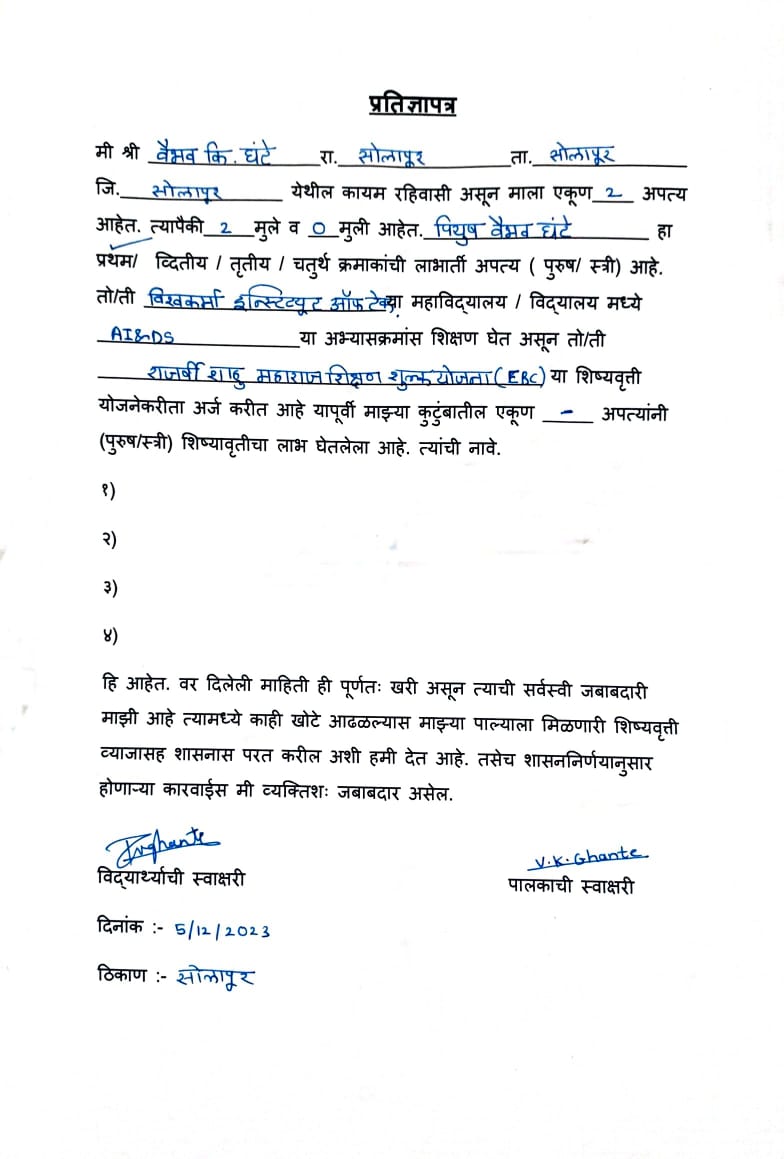 प्रतिज्ञापत्र
मी श्री वैभव कि. घंटे रा. सोलापूर ता. सोलापूर
जि. सोलापूर येथील कायम रहिवासी असून माला एकूण 2 अपत्य
आहेत. त्यापैकी 2 मुले व 0 मुली आहेत. पियुष वैभव घंटे हा
प्रथम/ व्दितीय / तृतीय / चतुर्थ क्रमाकांची लाभार्ती अपत्य ( पुरुष/ स्त्री) आहे.
तो/ती विश्वकर्मा इन्स्टिट्यूट ऑफ टेक्. या महाविद्यालय / विद्यालय मध्ये
AI&DS या अभ्यासक्रमांस शिक्षण घेत असून तो/ती
राजर्षी शाहु महाराज शिक्षण शुल्क योजना (EBC) या शिष्यवृत्ती
योजनेकरीता अर्ज करीत आहे यापूर्वी माझ्या कुटुंबातील एकूण - अपत्यांनी
(पुरुष/स्त्री) शिष्यावृतीचा लाभ घेतलेला आहे. त्यांची नावे.
१)
२)
३)
४)
हि आहेत. वर दिलेली माहिती ही पूर्णतः खरी असून त्याची सर्वस्वी जबाबदारी
माझी आहे त्यामध्ये काही खोटे आढळल्यास माझ्या पाल्याला मिळणारी शिष्यवृत्ती
व्याजासह शासनास परत करील अशी हमी देत आहे. तसेच शासननिर्णयानुसार
होणाऱ्या कारवाईस मी व्यक्तिशः जबाबदार असेल.
V.K.Ghante
विद्यार्थ्याची स्वाक्षरी पालकाची स्वाक्षरी
दिनांक :- 5/12/2023
ठिकाण :- सोलापूर